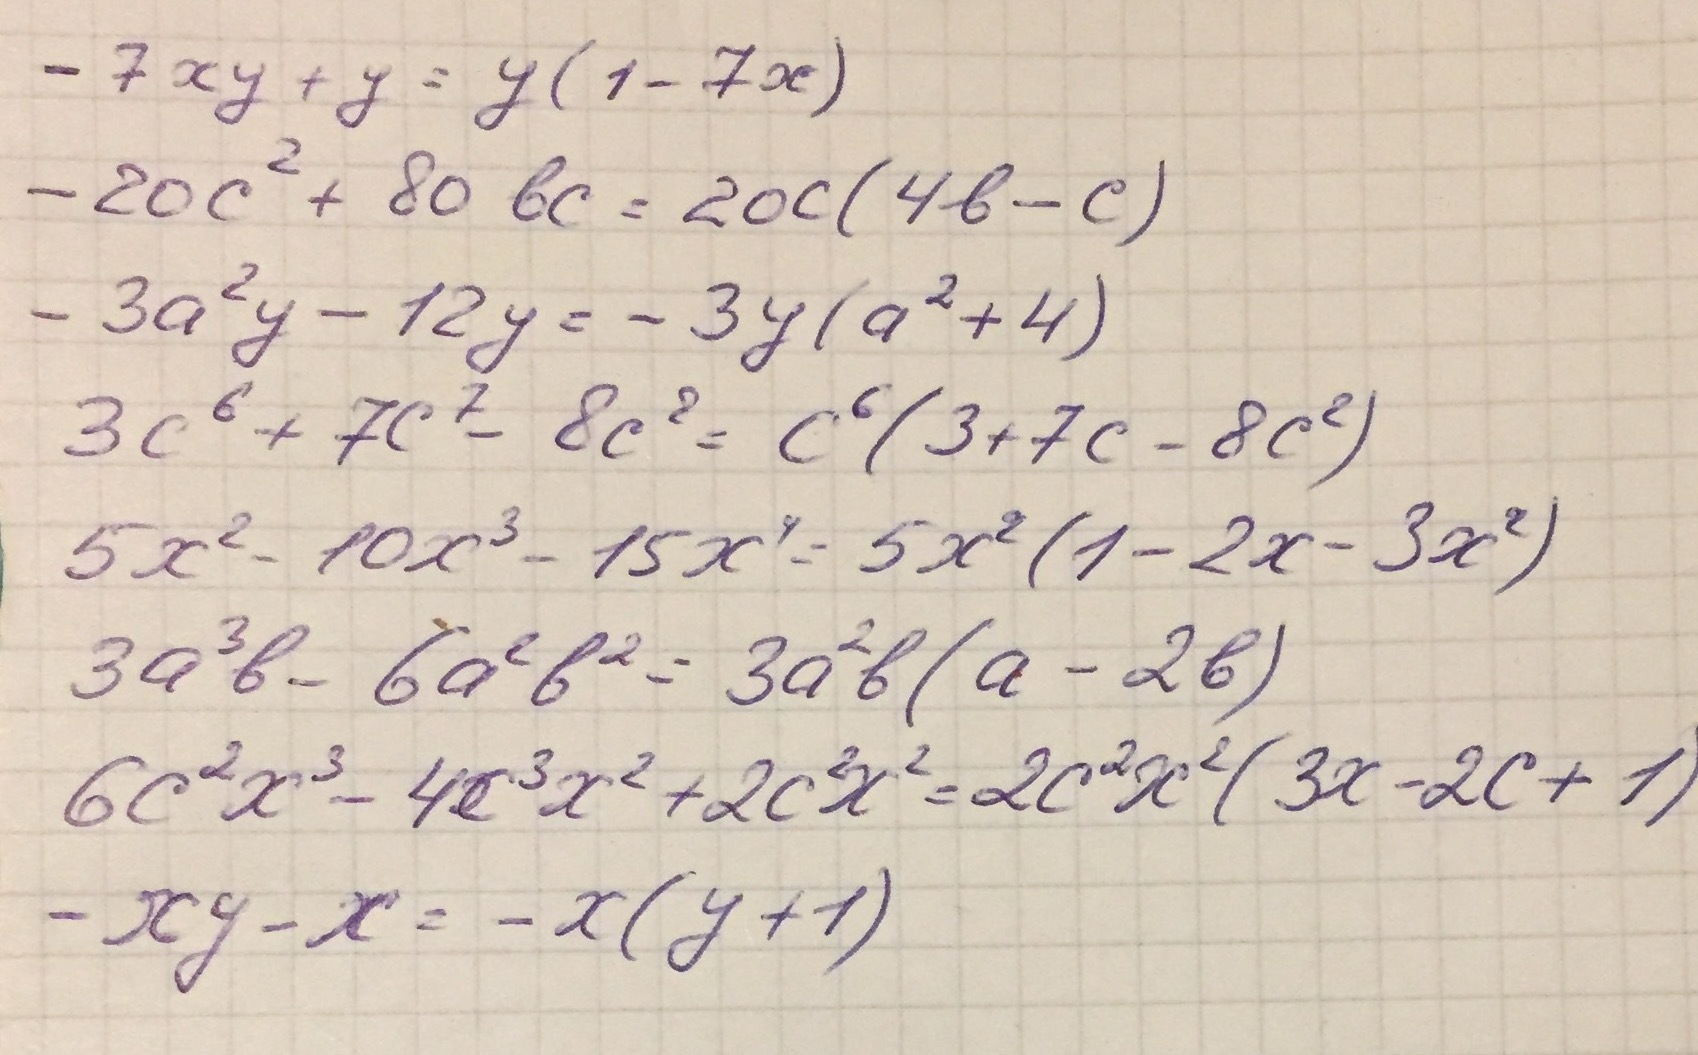 -7xy + y = y(1 - 7x)
-20c² + 80bc = 20c(4b - c)
-3a²y - 12y = -3y(a² + 4)
3c⁶ + 7c⁷ - 8c⁸ = c⁶(3 + 7c - 8c²)
5x² - 10x³ - 15x⁴ = 5x²(1 - 2x - 3x²)
3a³b - 6a²b² = 3a²b(a - 2b)
6c²x³ - 4c³x² + 2c²x² = 2c²x²(3x - 2c + 1)
-xy - x = -x(y + 1)